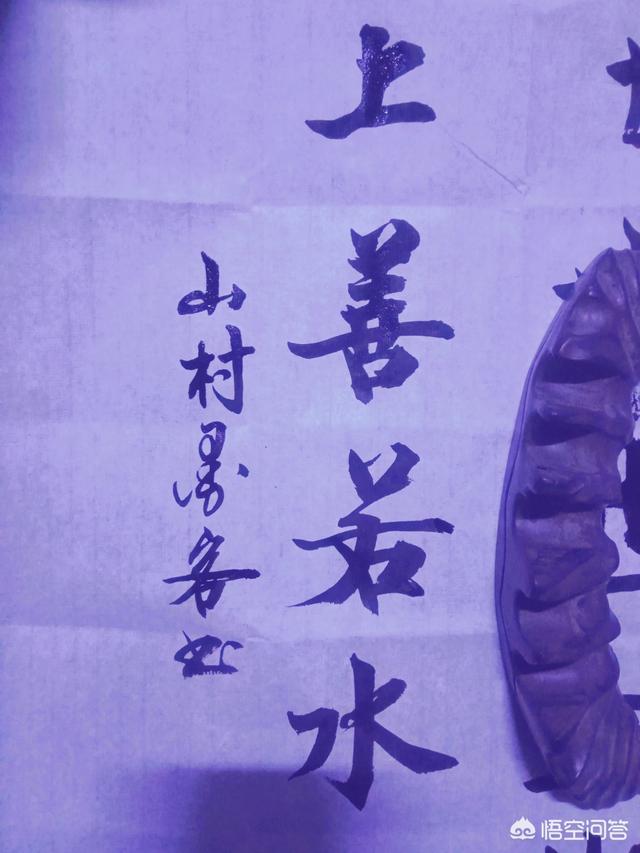 上善若水
山村墨客书
悟空问答